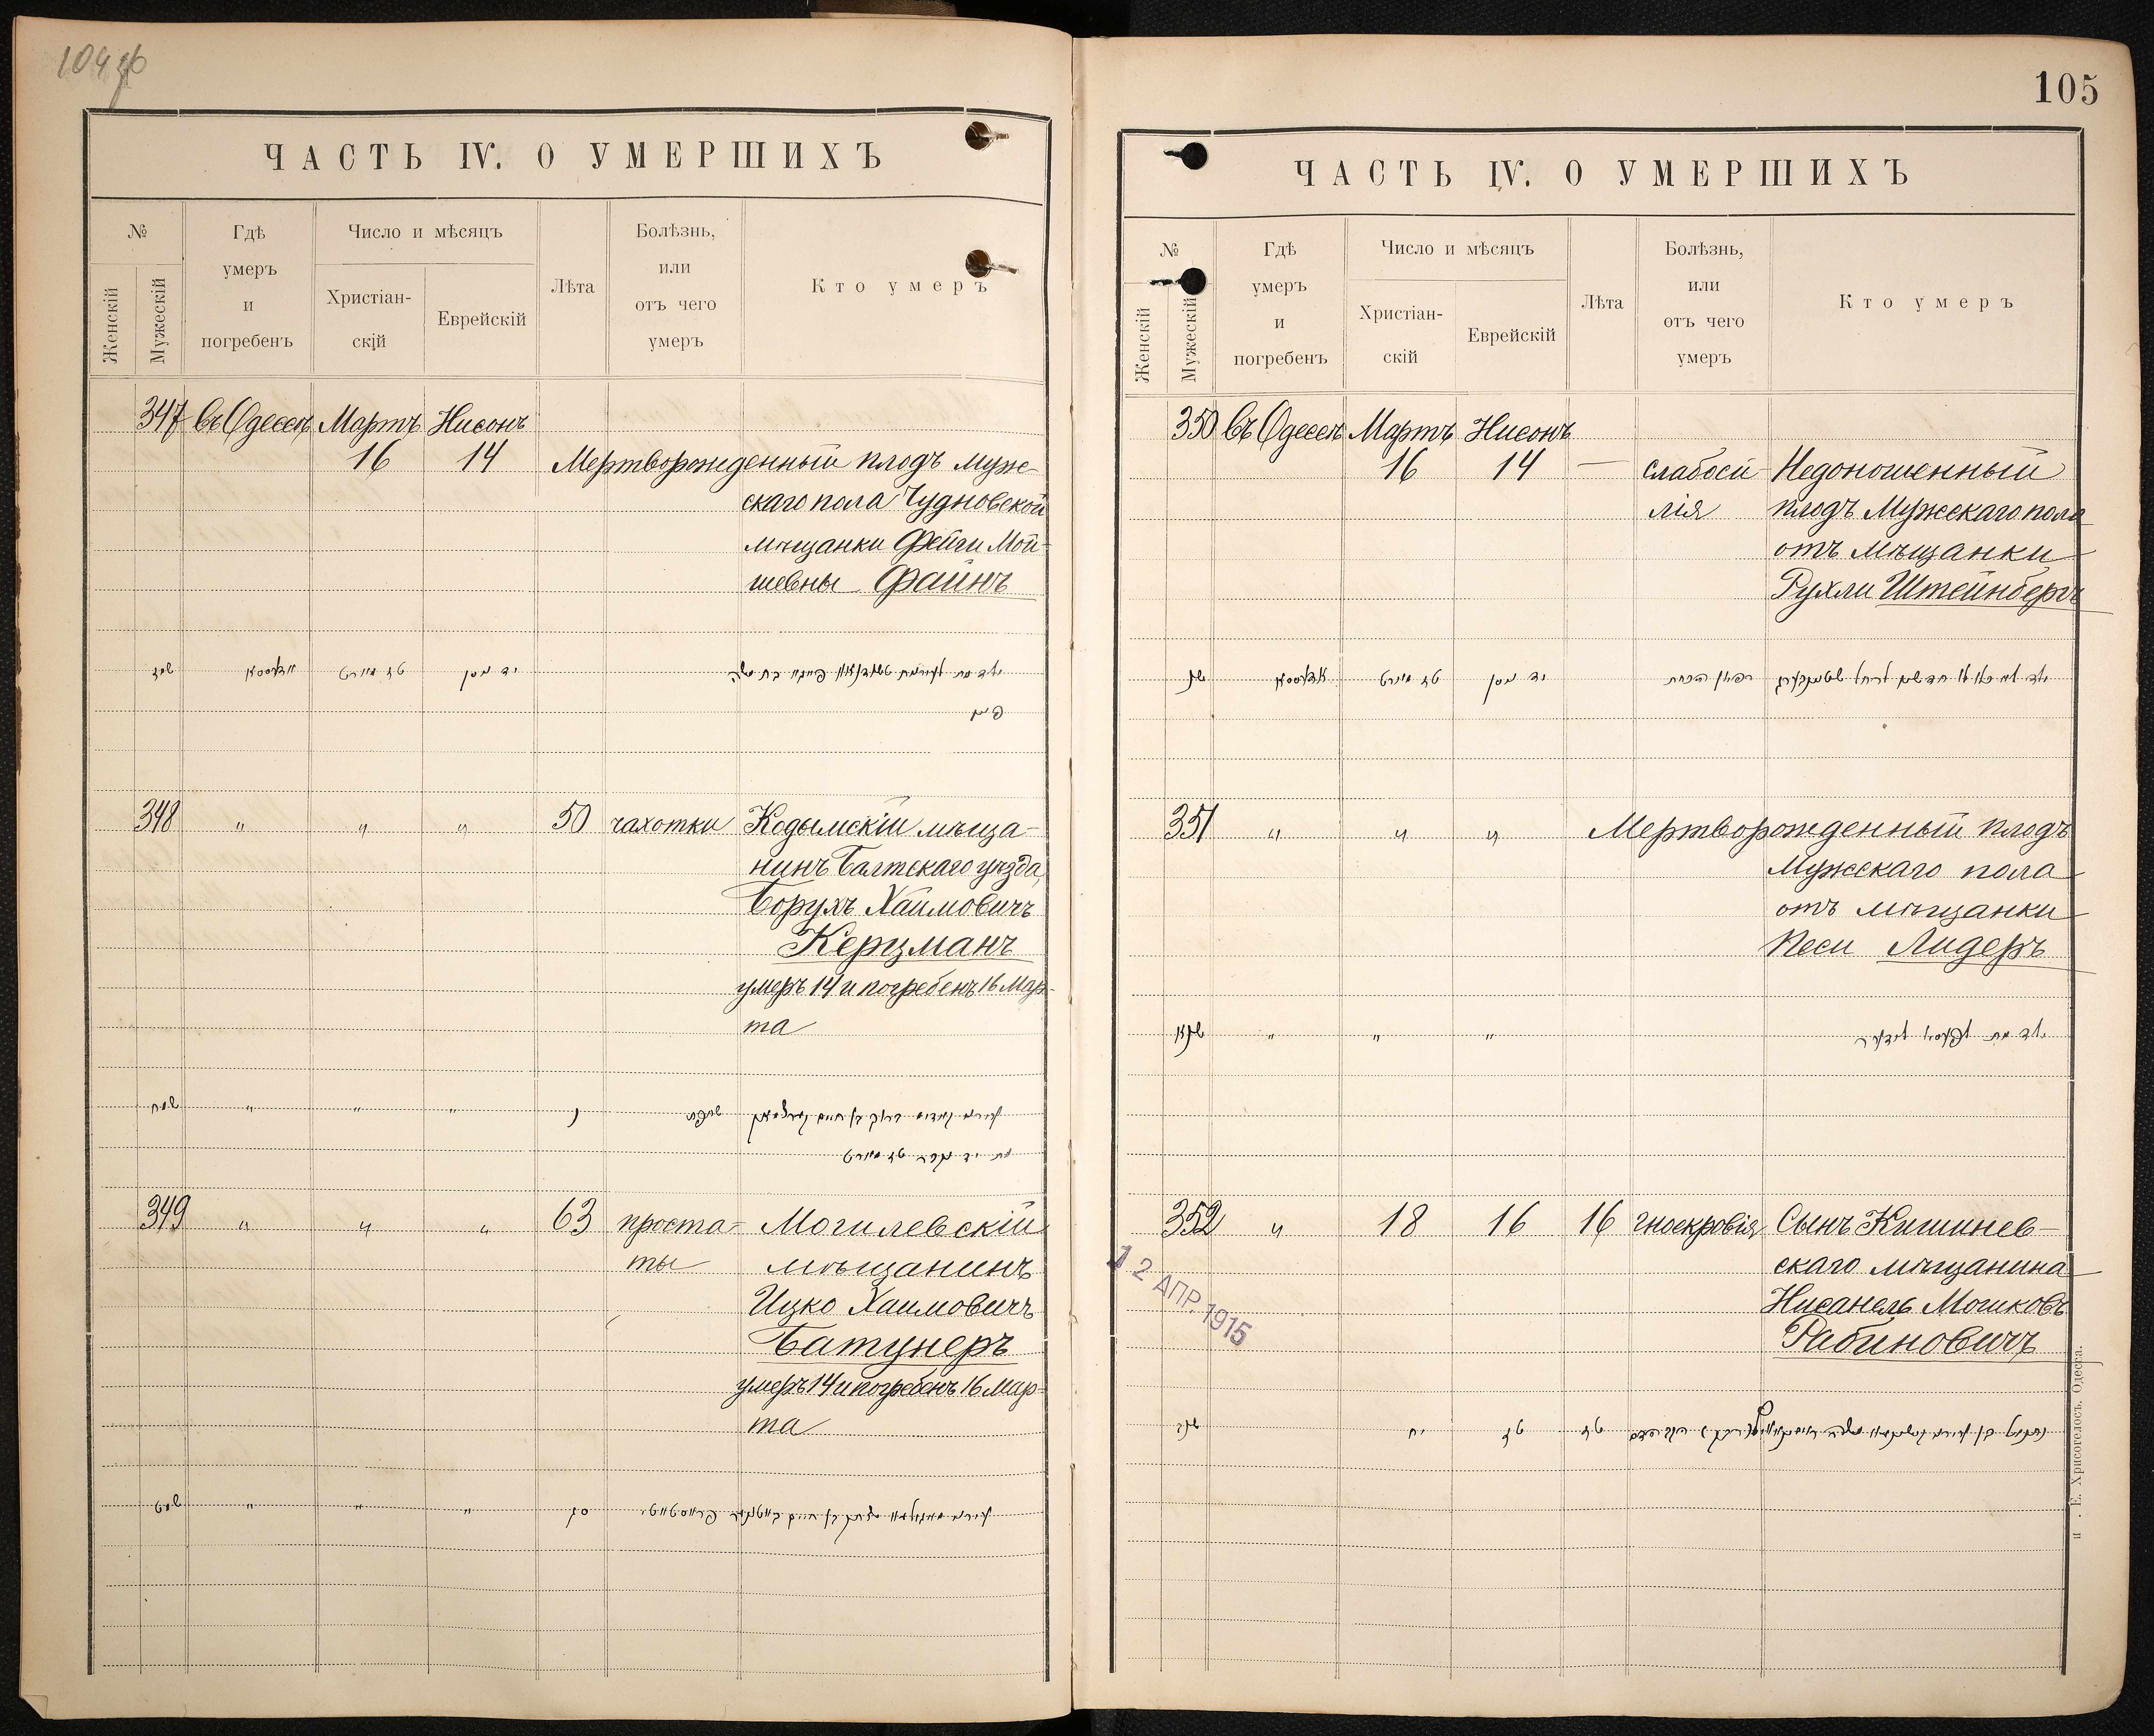 104 об
ЧАСТЬ IV. О УМЕРШИХЪ
№
Женскій
Мужескій
Гдѣ умеръ и погребенъ
Число и мѣсяцъ
Христіан-скій
Еврейскій
Лѣта
Болѣзнь, или отъ чего умеръ
Кто умеръ
347 въ Одессѣ Мартъ Нисонъ
16 14 Мертворожденный плодъ муж-
скаго пола Чудновской
мѣщанки Фейги Мой-
шевны Файнъ
שמז אדעססא טז מערט יד ניסן
348 " " " 50 чахотки Кодымскій мѣща-
нинъ Балтскаго уѣзда,
Борухъ Хаимовичъ
Керцманъ
умеръ 14 и погребенъ 16 Мар-
та
שמח " " " נ
349 " " " 63 проста- Могилевскій
ты мѣщанинъ
Ицко Хаимовичъ
Батунеръ
умеръ 14 и погребенъ 16 Мар-
та
שמט " " " סג
105
ЧАСТЬ IV. О УМЕРШИХЪ
№
Женскій
Мужескій
Гдѣ умеръ и погребенъ
Число и мѣсяцъ
Христіан-скій
Еврейскій
Лѣта
Болѣзнь, или отъ чего умеръ
Кто умеръ
350 въ Одессѣ Мартъ Нисонъ
16 14 — слабоси- Недоношенный
лія плодъ Мужскаго пола
отъ мѣщанки
Рухли Штейнбергъ
שנ אדעססא טז מערט יד ניסן
351 " " " Мертворожденный плодъ
Мужскаго пола
отъ мѣщанки
Песи Лидеръ
שנא " " "
352 " 18 16 16 гноекровія Сынъ Кишинев-
скаго мѣщанина
Нисанель Мошковъ
Рабиновичъ
שנב יח טז טז
12 АПР. 1915
Е. Хрисогелосъ. Одесса.